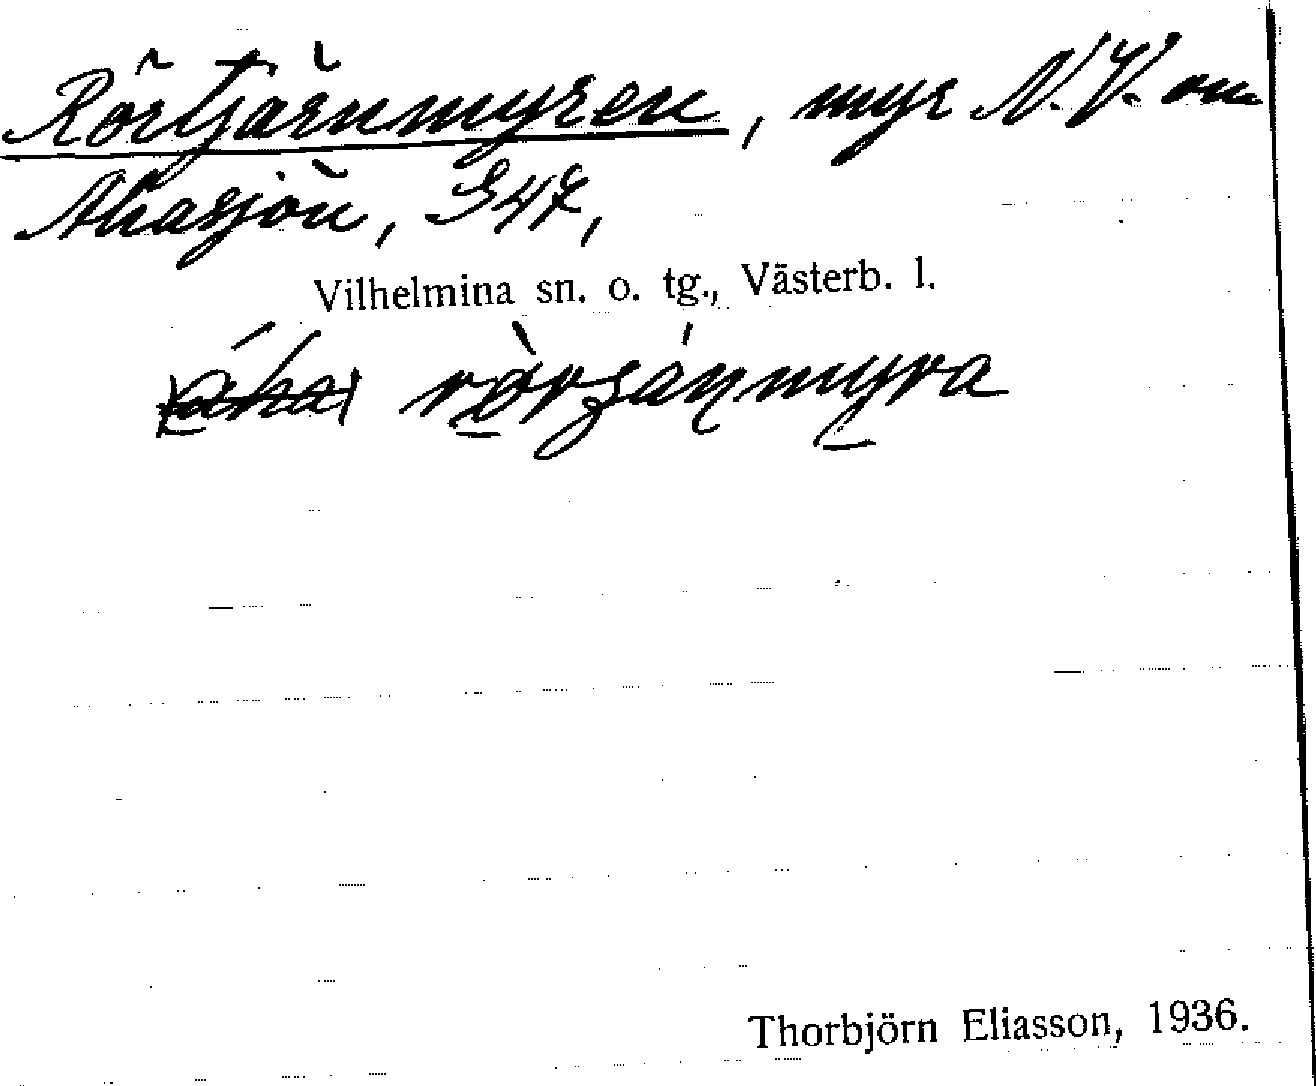 Rörtjärnmyren, myr N.V. om
Ahasjön, S47,
Vilhelmina sn. o. tg., Västerb. l.
Thorbjörn Eliasson, 1936.